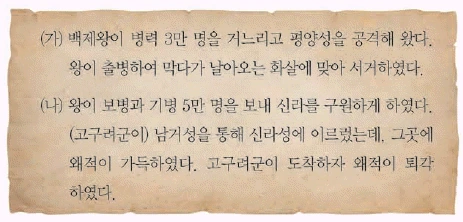 (가) 백제왕이 병력 3만 명을 거느리고 평양성을 공격해 왔다.
왕이 출병하여 막다가 날아오는 화살에 맞아 서거하였다.
(나) 왕이 보병과 기병 5만 명을 보내 신라를 구원하게 하였다.
(고구려군이) 남거성을 통해 신라성에 이르렀는데, 그곳에
왜적이 가득하였다. 고구려군이 도착하자 왜적이 퇴각
하였다.